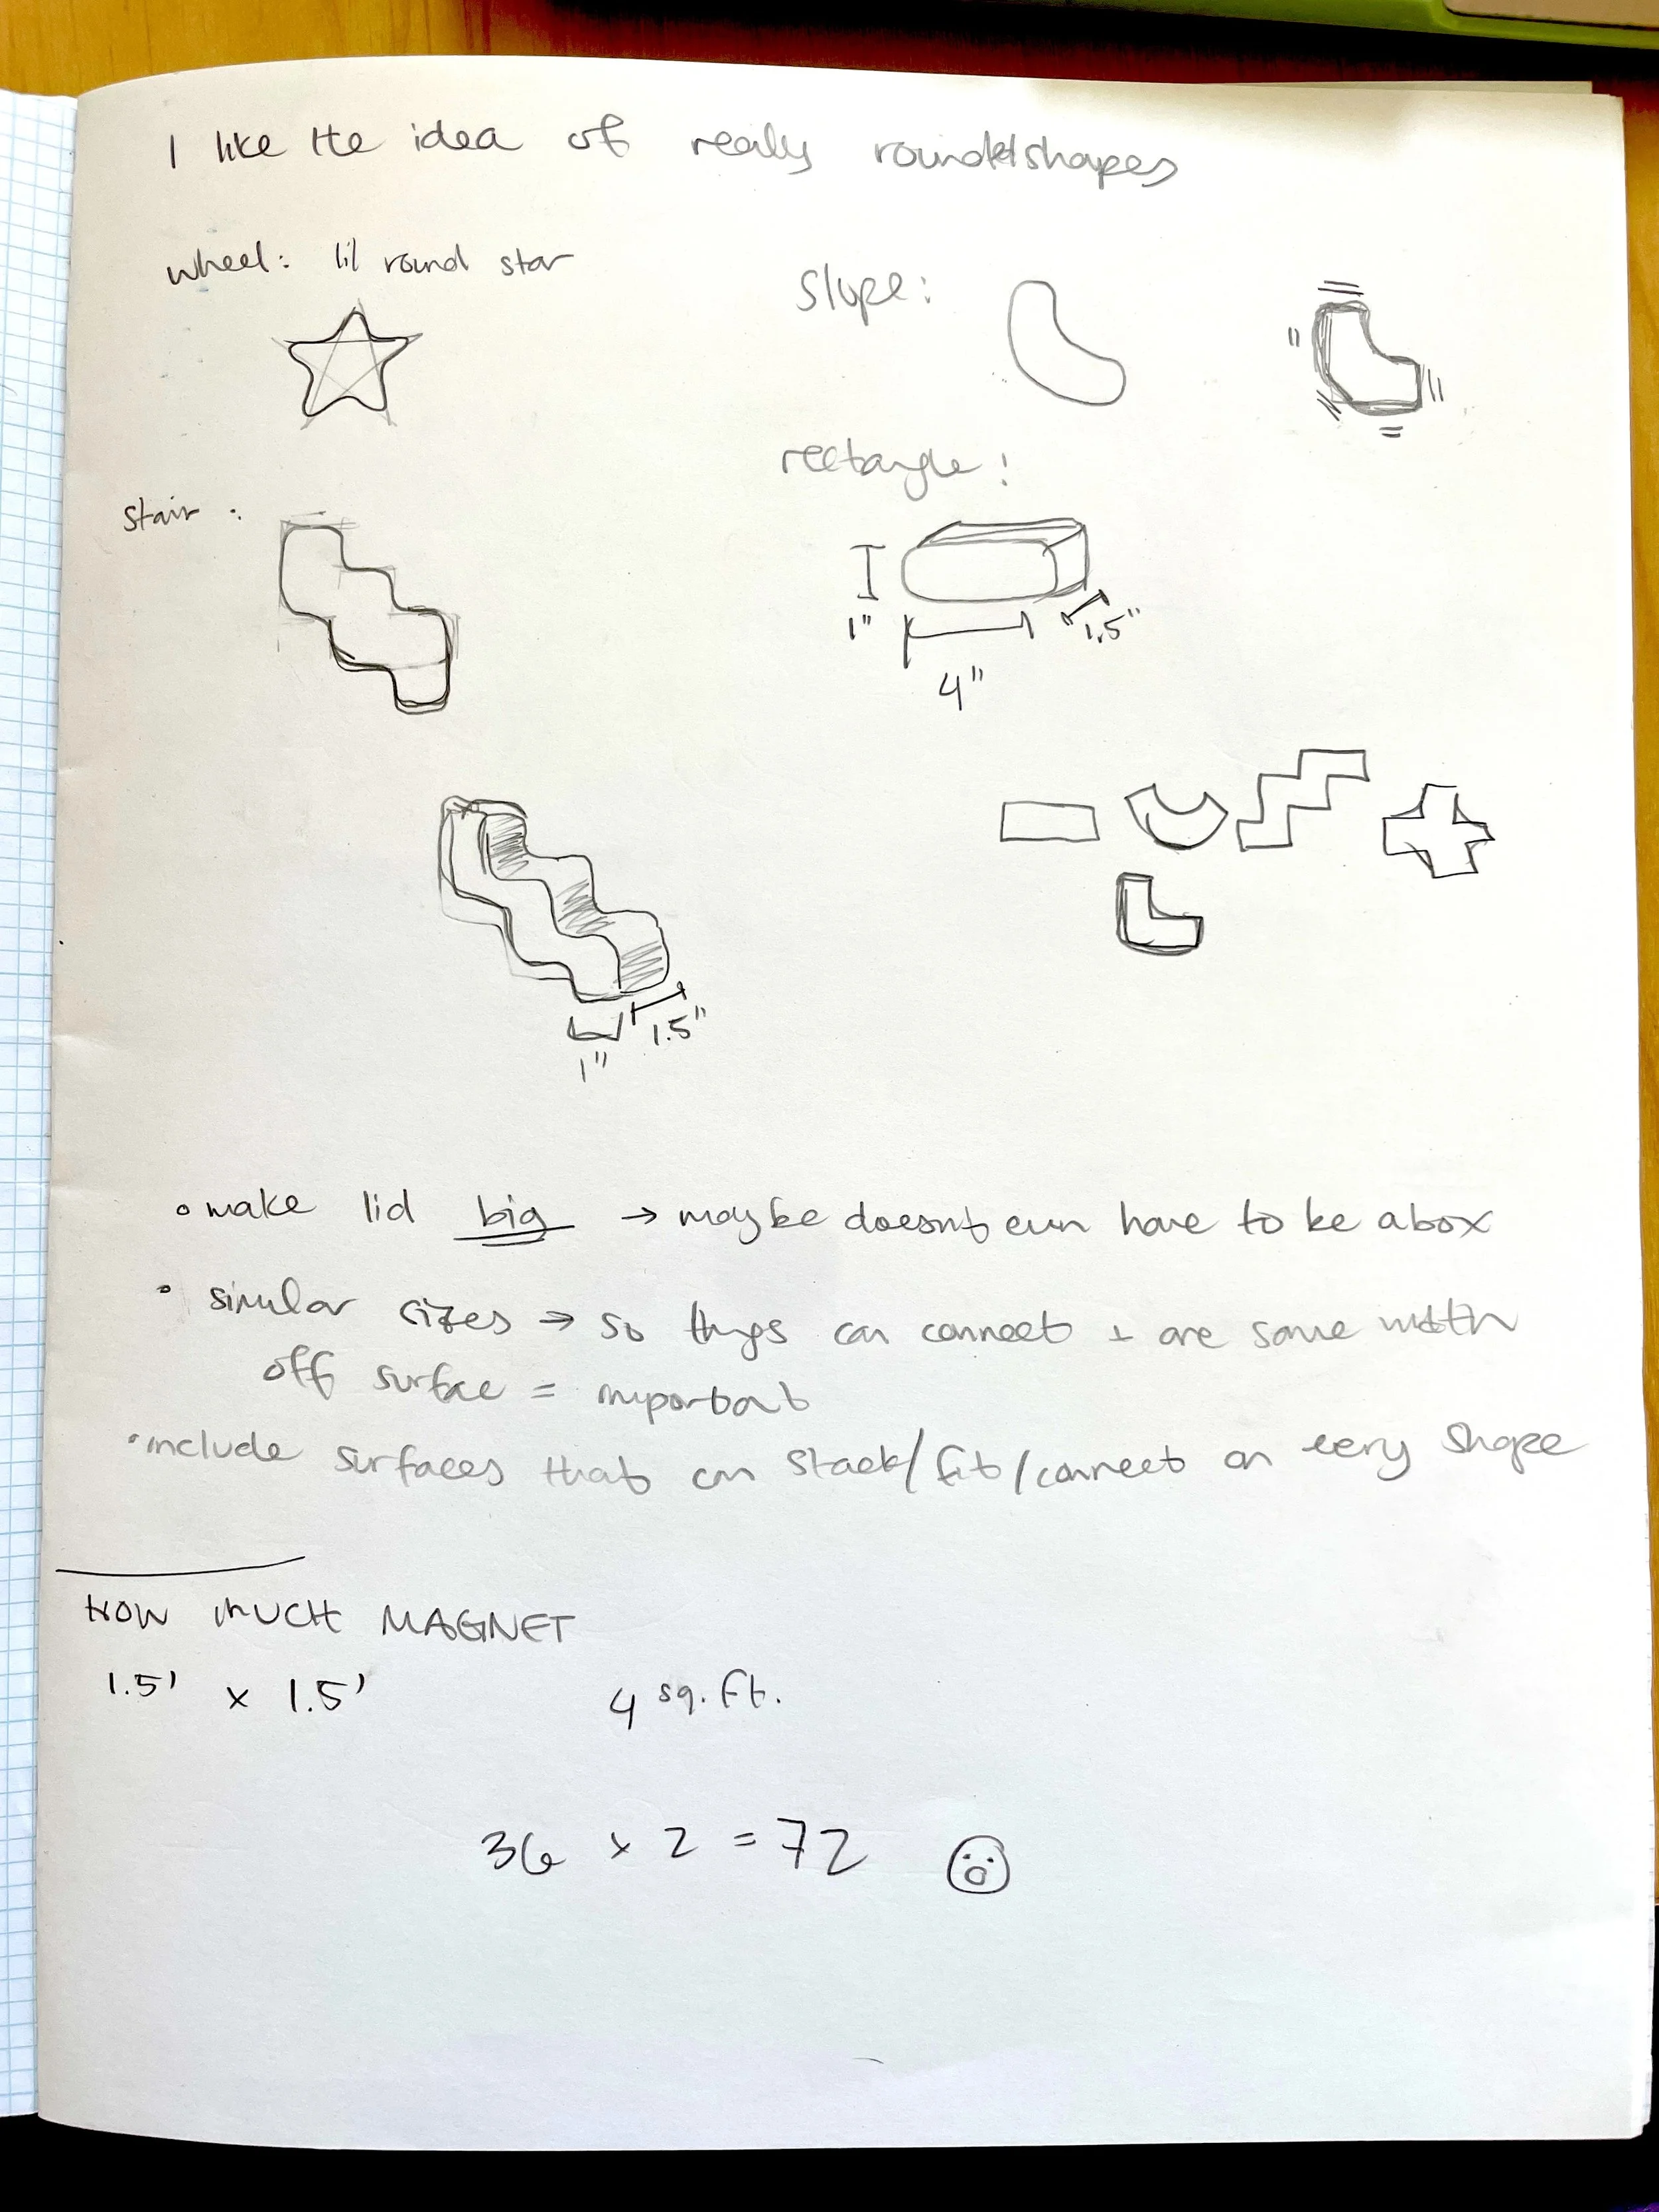 I like the idea of really rounded shapes
wheel: lil round star
slope:
rectangle:
stair:
1"
1.5"
4"
1.5"
1"
• make lid big → maybe doesnt even have to be a box
• similar sizes → so things can connect + are same width
off surface = important
• include surfaces that can stack/fit/connect on every shape
HOW MUCH MAGNET
1.5' x 1.5' 4 sq. ft.
36 x 2 = 72